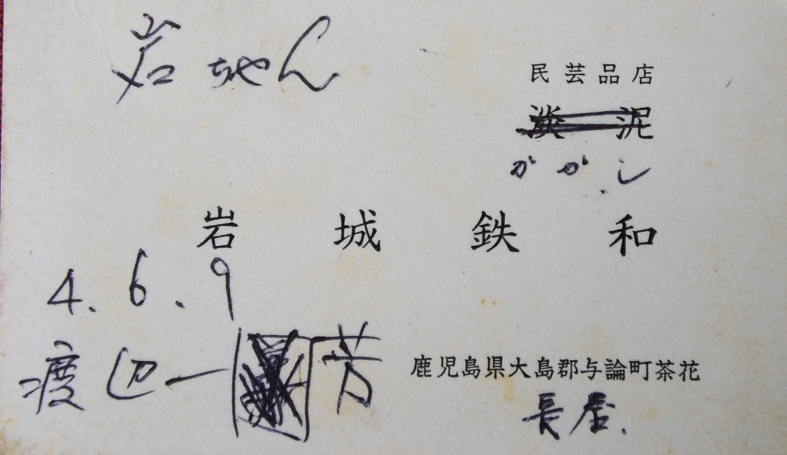 岩ちゃん
民芸品店
淡泥
かかし
岩城鉄和
4.6.9
渡辺一芳
鹿児島県大島郡与論町茶花
長屋.